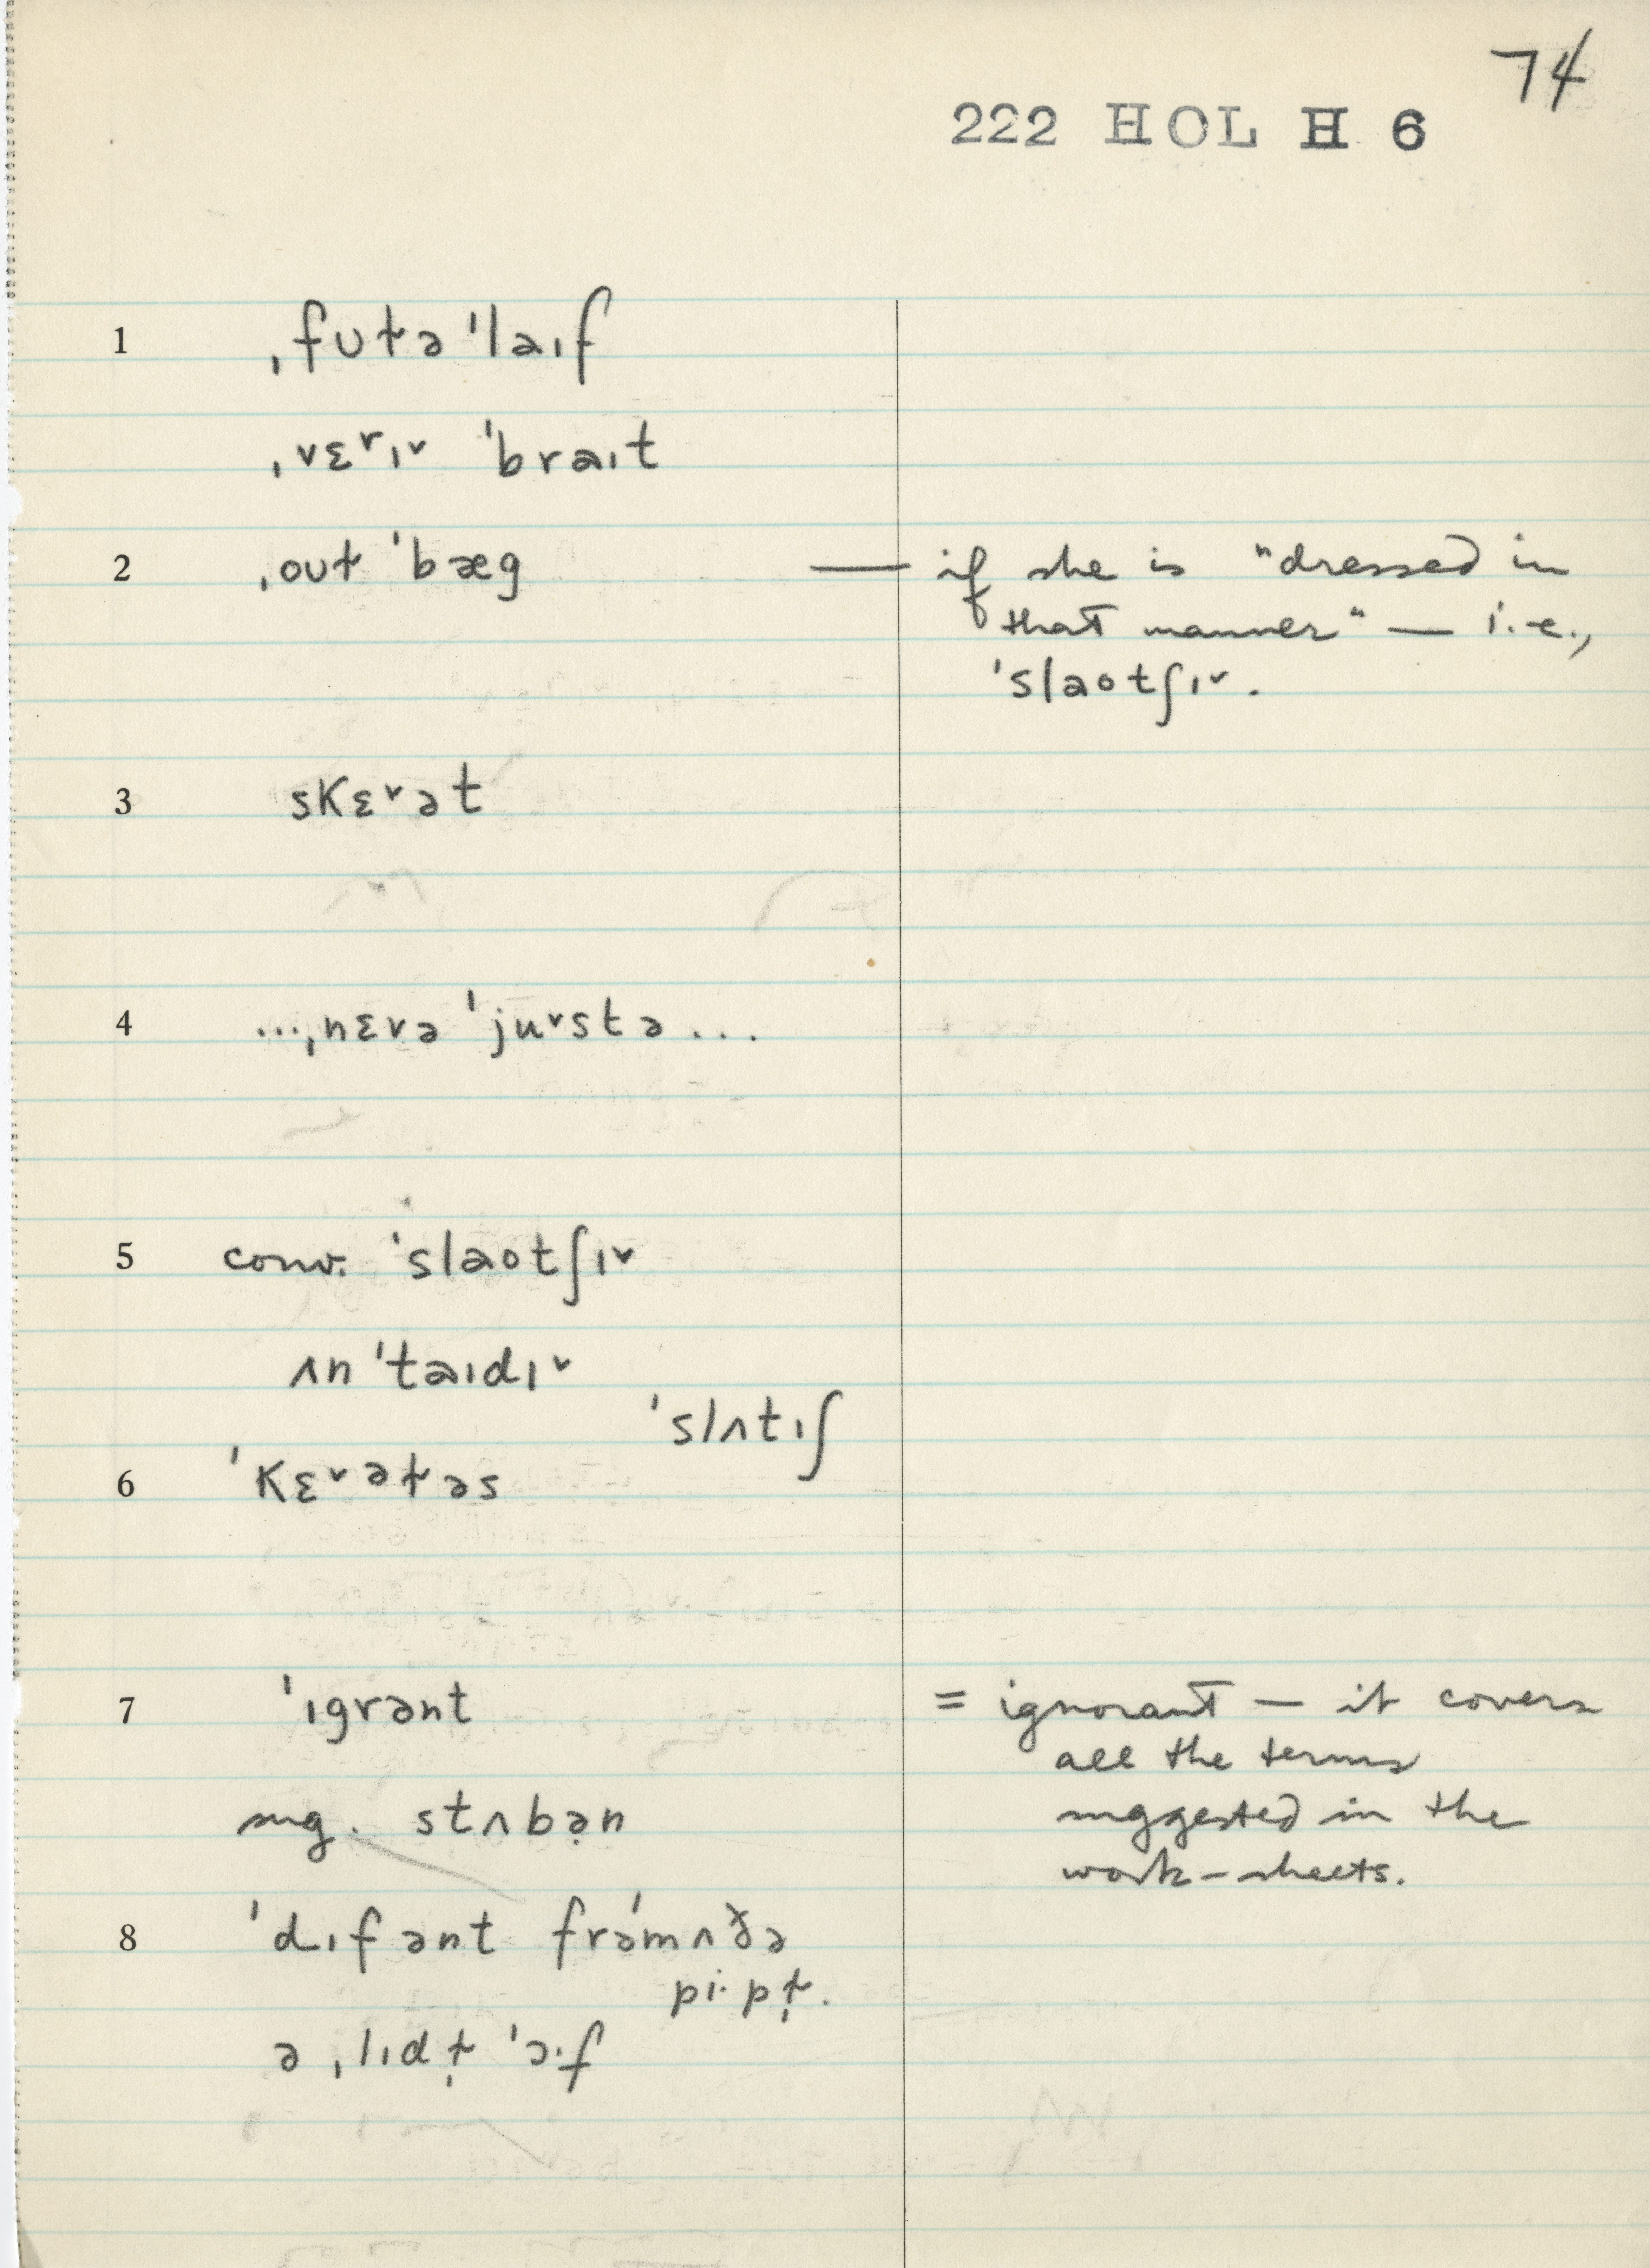 74
222 HOL H 6
1 ˌfʊɫə ˈləɪf
ˌvɛ˅rɪ˅ ˈbrəɪt
2 ˌoʊɫ ˈbæg — if she is "dressed in
that manner" — i.e.,
ˈsləotʃɪ˅.
3 skɛ˅ət
4 ...ˌnɛvə ˈju˅stə...
5 conv. ˈsləotʃɪ˅
ʌn ˈtəɪdɪ˅
ˈslʌtɪʃ
6 ˈkɛ˅əɫəs
7 ˈɪgrənt = ignorant — it covers
all the terms
sug. stʌbə̣n suggested in the
work-sheets.
8 ˈdɪfənt frəˈmʌðə
pi·pɫ̩.
ə ˌlɪdɫ̩ ˈɔ·f